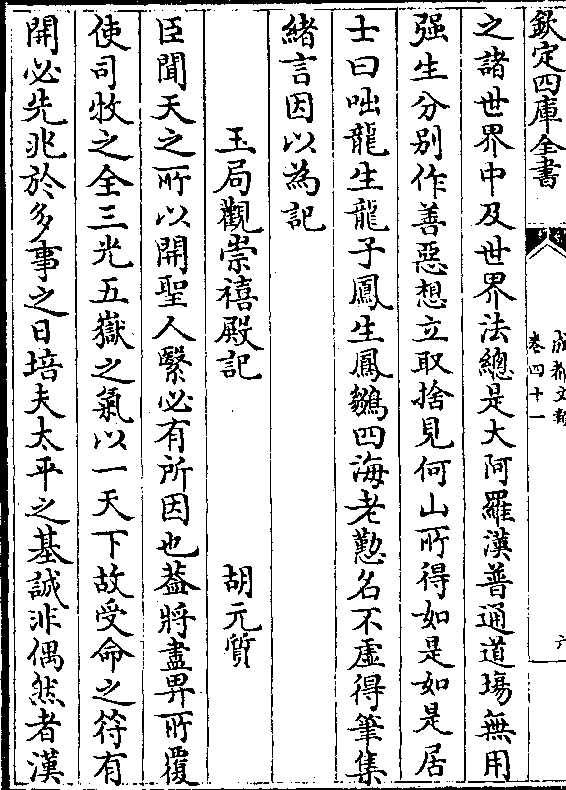 欽定四庫全書
成都文類
卷四十一
六
之諸世界中及世界法總是大阿羅漢普通道場無用
强生分别作善惡想立取捨見何山所得如是如是居
士曰咄龍生龍子鳳生鳳鶵四海老懃名不虛得筆集
緒言因以為記
玉局觀崇禧殿記
胡元質
臣聞天之所以開聖人繄必有所因也葢將盡畀所覆
使司牧之全三光五嶽之氣以一天下故受命之符有
開必先兆於多事之日培夫太平之基誠非偶然者漢